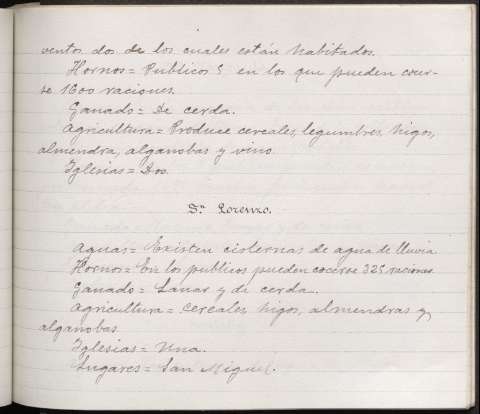 ventos dos de los cuales están habitados.
Hornos = Publicos 5 en los que pueden cocer-
se 1600 raciones.
Ganado = De cerda.
Agricultura = Produce cereales, legumbres, higos,
almendra, algarrobas y vino.
Iglesias = Dos.
Sn. Lorenzo.
Aguas = Existen cisternas de agua de lluvia
Hornos = En los publicos pueden cocerse 325 raciones
Ganado = Lanar y de cerda.
Agricultura = Cereales, higos, almendras y
algarrobas
Iglesias = Una.
Lugares = San Miguel.